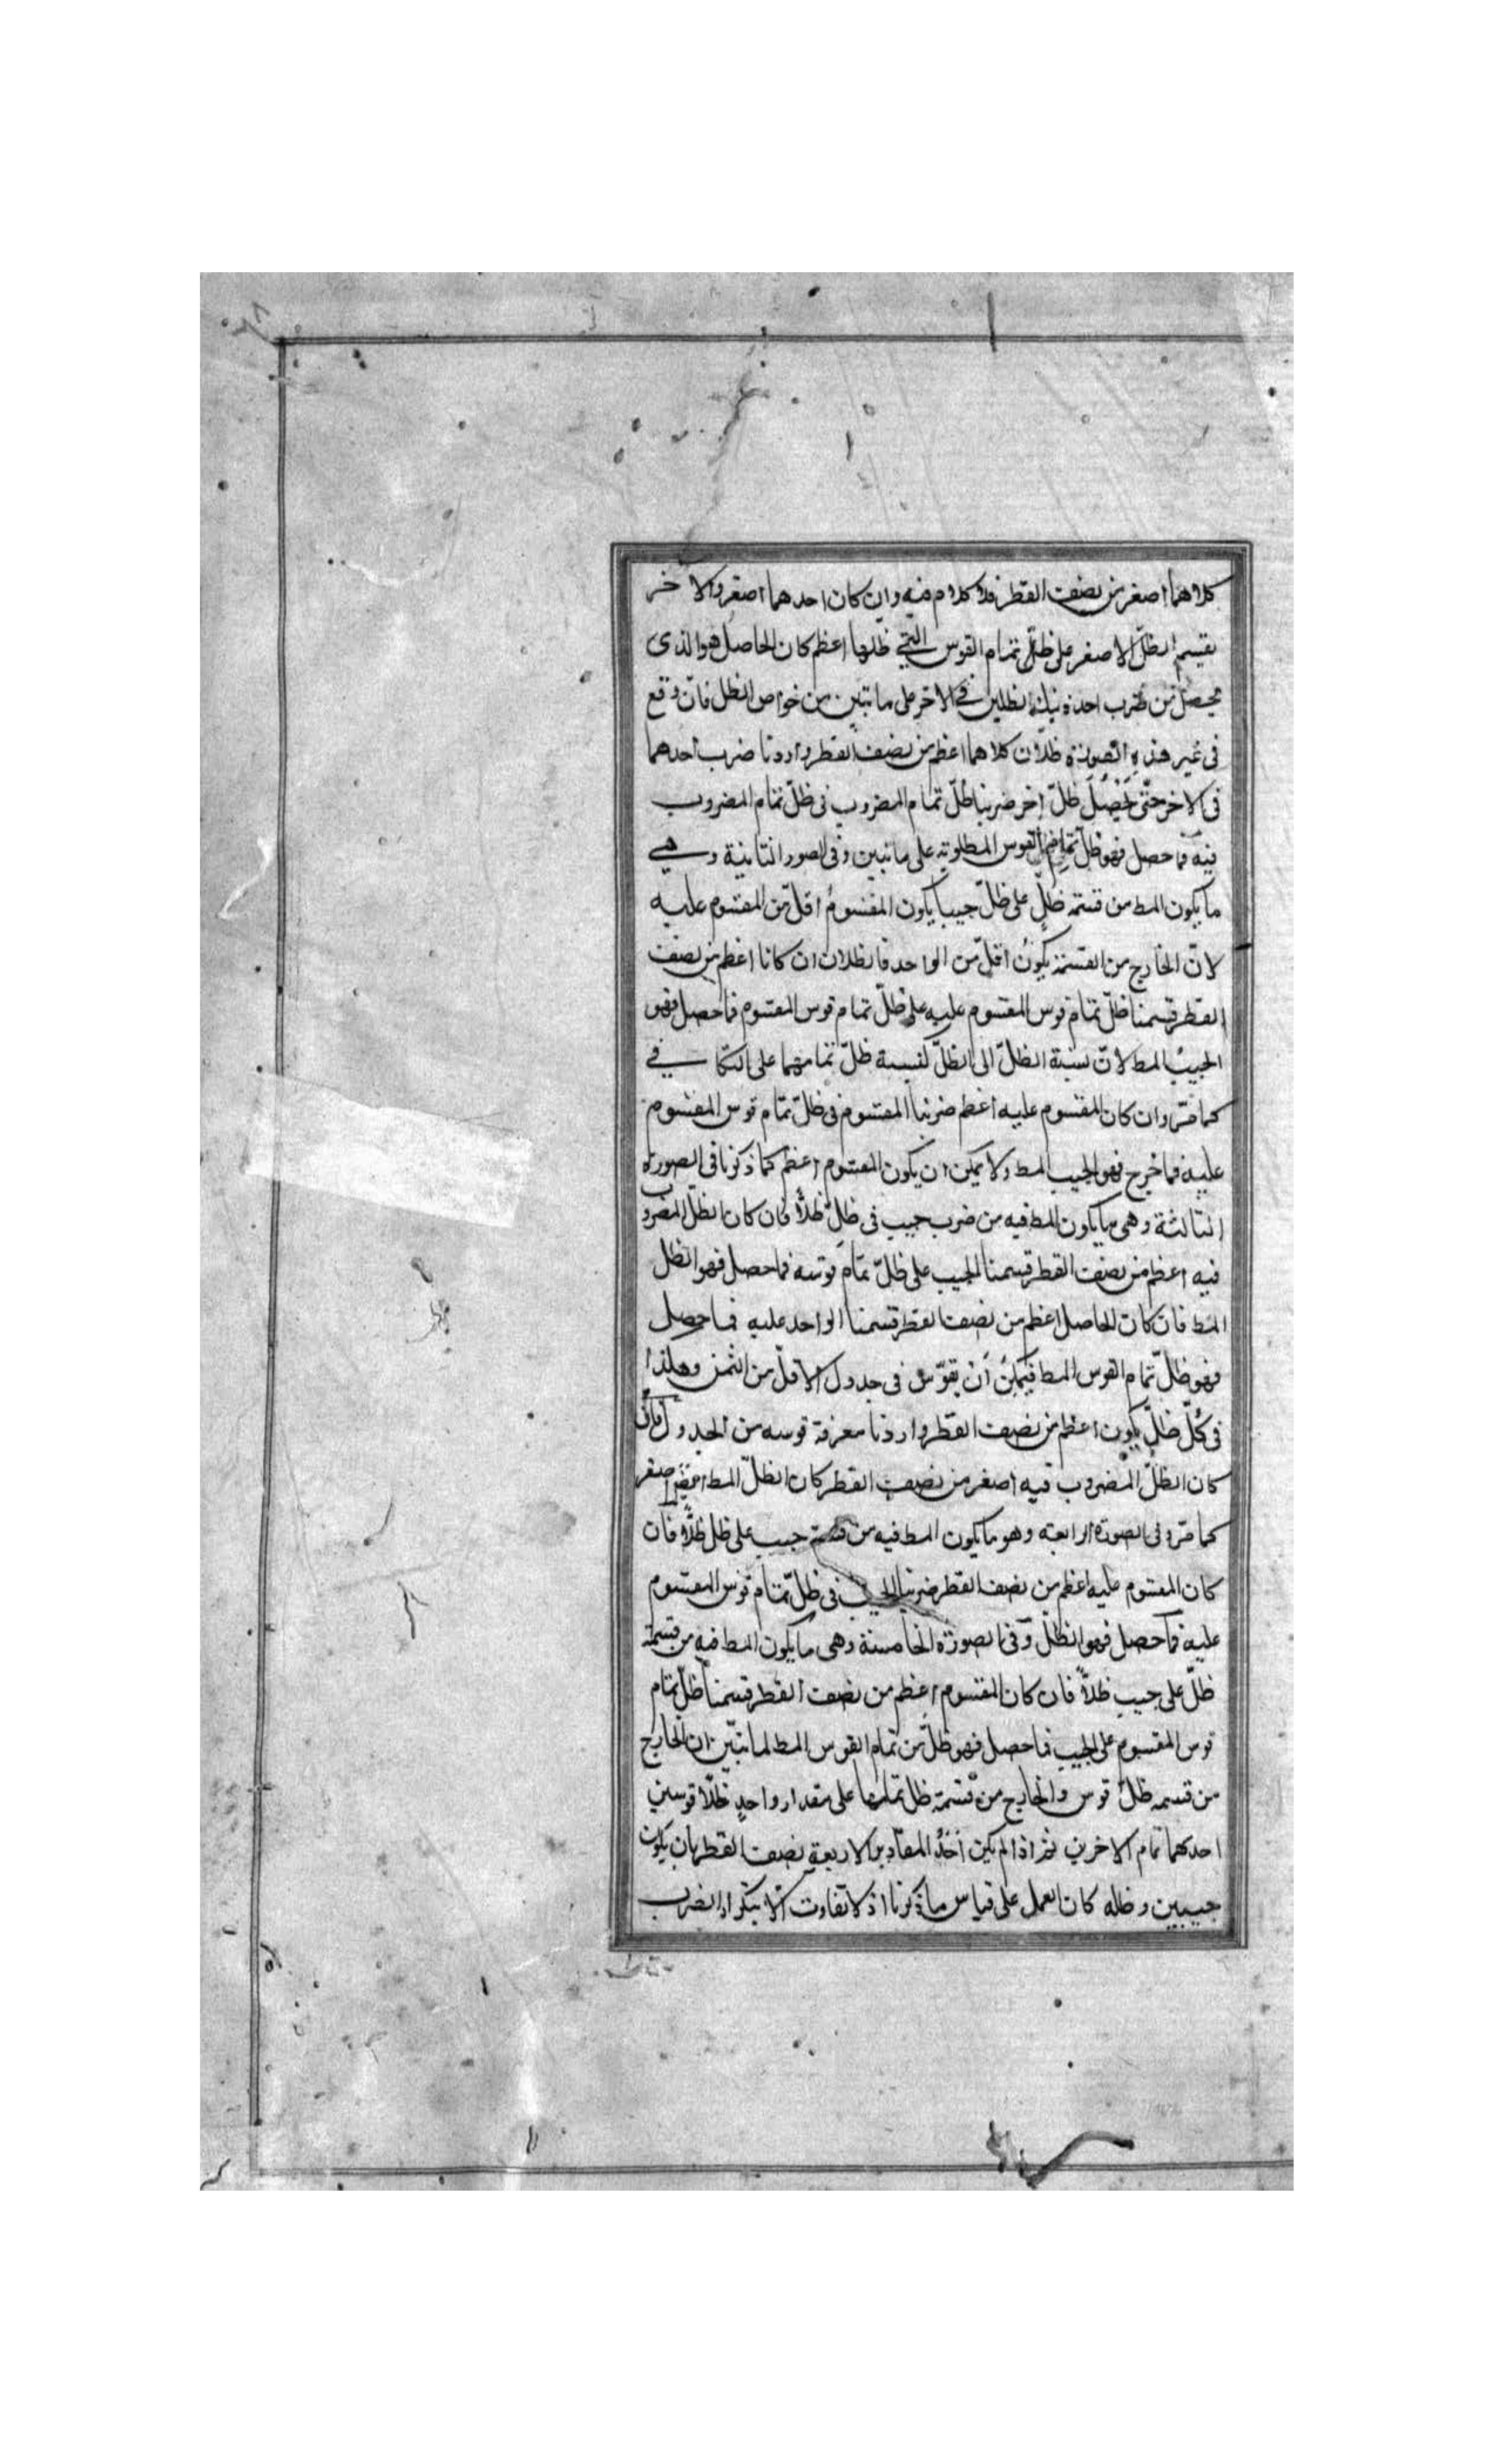 كلاهما اصغر من نصف القطر فلا كلام فيه وان كان احدهما اصغر والاخر
يقسم الظل الاصغر على ظلّ تمام القوس التي ظلها اعظم كان الحاصل هو الذى
يحصل من ضرب احد ذينك الظلين في الاخر على ما تبين من خواص الظل فان وقع
فى غير هذه الصورة ظلّان كلاهما اعظم من نصف القطر واردنا ضرب احدهما
فى الاخر حتّى يَحْصُلَ ظلّ اخر ضربنا ظلّ تمام المضروب فى ظلّ تمام المضروب
فيه فما حصل فهو ظل تمام القوس المطلوبة على ما تبين وفى الصور الثانية وهي
ما يكون المط من قسمة ظلّ على ظلّ جيبا يكون المقسومُ اقلّ من المقسوم عليه
لانّ الخارج من القسمة يكونُ اقلّ من الواحد فالظلان ان كانا اعظم من نصف
القطر قسمنا ظلّ تمام قوس المقسوم عليه على ظلّ تمام قوس المقسوم فما حصل فهو
الجيبُ المط لانّ نسبة الظلّ الى الظلّ كنسبة ظلّ تمامهما على التكافي
كما مرّ وان كان المقسوم عليه اعظم ضربنا المقسوم فى ظلّ تمام قوس المقسوم
عليه فما خرج فهو الجيب المط ولا يمكن ان يكون المقسوم اعظم كما ذكرنا فى الصورة
الثالثة وهى ما يكون المط فيه من ضرب جيب فى ظلّ ظلّاً فان كان الظلّ المضروب
فيه اعظم من نصف القطر قسمنا الجيب على ظلّ تمام قوسه فما حصل فهو الظل
المط فان كان الحاصل اعظم من نصف القطر قسمنا الواحد عليه فما حصل
فهو ظلّ تمام القوس المط فيمكن أَنْ يقوّس فى جدول الاقلّ من الثمن وهكذا
فى كُلّ ظلّ يكون اعظم من نصف القطر واردنا معرفة قوسه من الجدول فان
كان الظلّ المضروب فيه اصغر من نصف القطر كان الظلّ المط اصغر
كما مرّ وفى الصورة الرابعة وهو ما يكون المط فيه من قسمة جيب على ظل ظلّاً فان
كان المقسوم عليه اعظم من نصف القطر ضربنا الجيب فى ظلّ تمام قوس المقسوم
عليه فما حصل فهو الظلّ وفى الصورة الخامسة وهى ما يكون المط فيه من قسمة
ظلّ على جيب ظلّاً فان كان المقسوم اعظم من نصف القطر قسمنا ظلّ تمام
قوس المقسوم على الجيب فما حصل فهو ظلّ من تمام القوس المط لما تبيّن ان الخارج
من قسمة ظلّ قوس والخارج من قسمة ظل تمامها على مقدار واحدٍ ظلّا قوسين
احدهما تمام الاخرين ثم اذا لم يكن أَحَدُ المقادير الاربعة نصف القطر بان يكون
جيبين وظله كان العمل على قياس ما ذكرنا اذ لا تفاوت الّا بتكرار الضرب